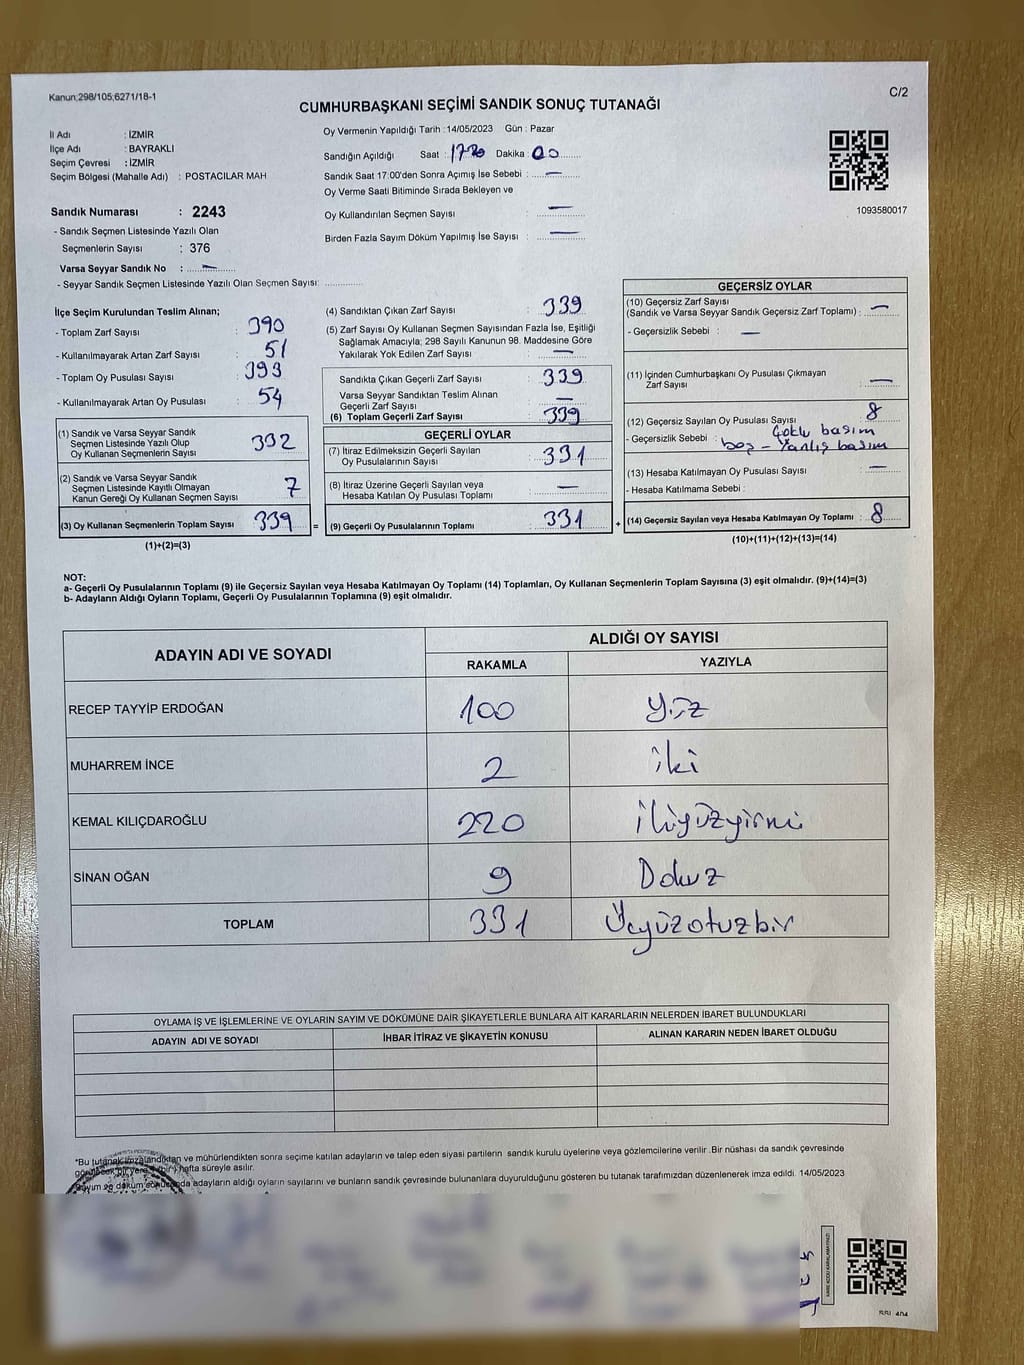 Kanun;298/105;6271/18-1
C/2
CUMHURBAŞKANI SEÇİMİ SANDIK SONUÇ TUTANAĞI
İl Adı : İZMİR
İlçe Adı : BAYRAKLI
Seçim Çevresi : İZMİR
Seçim Bölgesi (Mahalle Adı) : POSTACILAR MAH
Sandık Numarası : 2243
- Sandık Seçmen Listesinde Yazılı Olan
Seçmenlerin Sayısı : 376
Varsa Seyyar Sandık No : —
- Seyyar Sandık Seçmen Listesinde Yazılı Olan Seçmen Sayısı:
Oy Vermenin Yapıldığı Tarih : 14/05/2023 Gün : Pazar
Sandığın Açıldığı Saat : Dakika : 00
Sandık Saat 17:00'den Sonra Açımış İse Sebebi : —
Oy Verme Saati Bitiminde Sırada Bekleyen ve
Oy Kullandırılan Seçmen Sayısı : —
Birden Fazla Sayım Döküm Yapılmış İse Sayısı : —
1093580017
İlçe Seçim Kurulundan Teslim Alınan;
- Toplam Zarf Sayısı : 390
- Kullanılmayarak Artan Zarf Sayısı : 51
- Toplam Oy Pusulası Sayısı : 393
- Kullanılmayarak Artan Oy Pusulası : 54
(1) Sandık ve Varsa Seyyar Sandık
Seçmen Listesinde Yazılı Olup
Oy Kullanan Seçmenlerin Sayısı : 332
(2) Sandık ve Varsa Seyyar Sandık
Seçmen Listesinde Kayıtlı Olmayan
Kanun Gereği Oy Kullanan Seçmen Sayısı : 7
(3) Oy Kullanan Seçmenlerin Toplam Sayısı : 339 =
(1)+(2)=(3)
(4) Sandıktan Çıkan Zarf Sayısı : 339
(5) Zarf Sayısı Oy Kullanan Seçmen Sayısından Fazla İse, Eşitliği
Sağlamak Amacıyla; 298 Sayılı Kanunun 98. Maddesine Göre
Yakılarak Yok Edilen Zarf Sayısı : —
Sandıkta Çıkan Geçerli Zarf Sayısı : 339
Varsa Seyyar Sandıktan Teslim Alınan
Geçerli Zarf Sayısı : —
(6) Toplam Geçerli Zarf Sayısı : 339
GEÇERLİ OYLAR
(7) İtiraz Edilmeksizin Geçerli Sayılan
Oy Pusulalarının Sayısı : 331
(8) İtiraz Üzerine Geçerli Sayılan veya
Hesaba Katılan Oy Pusulası Toplamı : —
(9) Geçerli Oy Pusulalarının Toplamı : 331 +
GEÇERSİZ OYLAR
(10) Geçersiz Zarf Sayısı
(Sandık ve Varsa Seyyar Sandık Geçersiz Zarf Toplamı) : —
- Geçersizlik Sebebi : —
(11) İçinden Cumhurbaşkanı Oy Pusulası Çıkmayan
Zarf Sayısı : —
(12) Geçersiz Sayılan Oy Pusulası Sayısı : 8
- Geçersizlik Sebebi : Çoklu basım
boş - Yanlış basım
(13) Hesaba Katılmayan Oy Pusulası Sayısı : —
- Hesaba Katılmama Sebebi :
(14) Geçersiz Sayılan veya Hesaba Katılmayan Oy Toplamı : 8
(10)+(11)+(12)+(13)=(14)
NOT:
a- Geçerli Oy Pusulalarının Toplamı (9) ile Geçersiz Sayılan veya Hesaba Katılmayan Oy Toplamı (14) Toplamları, Oy Kullanan Seçmenlerin Toplam Sayısına (3) eşit olmalıdır. (9)+(14)=(3)
b- Adayların Aldığı Oyların Toplamı, Geçerli Oy Pusulalarının Toplamına (9) eşit olmalıdır.
ADAYIN ADI VE SOYADI
ALDIĞI OY SAYISI
RAKAMLA YAZIYLA
RECEP TAYYİP ERDOĞAN 100 Yüz
MUHARREM İNCE 2 iki
KEMAL KILIÇDAROĞLU 220 ikiyüzyirmi
SİNAN OĞAN 9 Dokuz
TOPLAM 331 Üçyüzotuzbir
OYLAMA İŞ VE İŞLEMLERİNE VE OYLARIN SAYIM VE DÖKÜMÜNE DAİR ŞİKAYETLERLE BUNLARA AİT KARARLARIN NELERDEN İBARET BULUNDUKLARI
ADAYIN ADI VE SOYADI İHBAR İTİRAZ VE ŞİKAYETİN KONUSU ALINAN KARARIN NEDEN İBARET OLDUĞU
*Bu tutanak imzalandıktan ve mühürlendikten sonra seçime katılan adayların ve talep eden siyasi partilerin sandık kurulu üyelerine veya gözlemcilerine verilir .Bir nüshası da sandık çevresinde
görülecek bir yere 1 (bir) hafta süreyle asılır.
Sayım ve döküm sonucunda adayların aldığı oyların sayılarını ve bunların sandık çevresinde bulunanlara duyurulduğunu gösteren bu tutanak tarafımızdan düzenlenerek imza edildi. 14/05/2023
KARE KODU KARALAMAYINIZ!